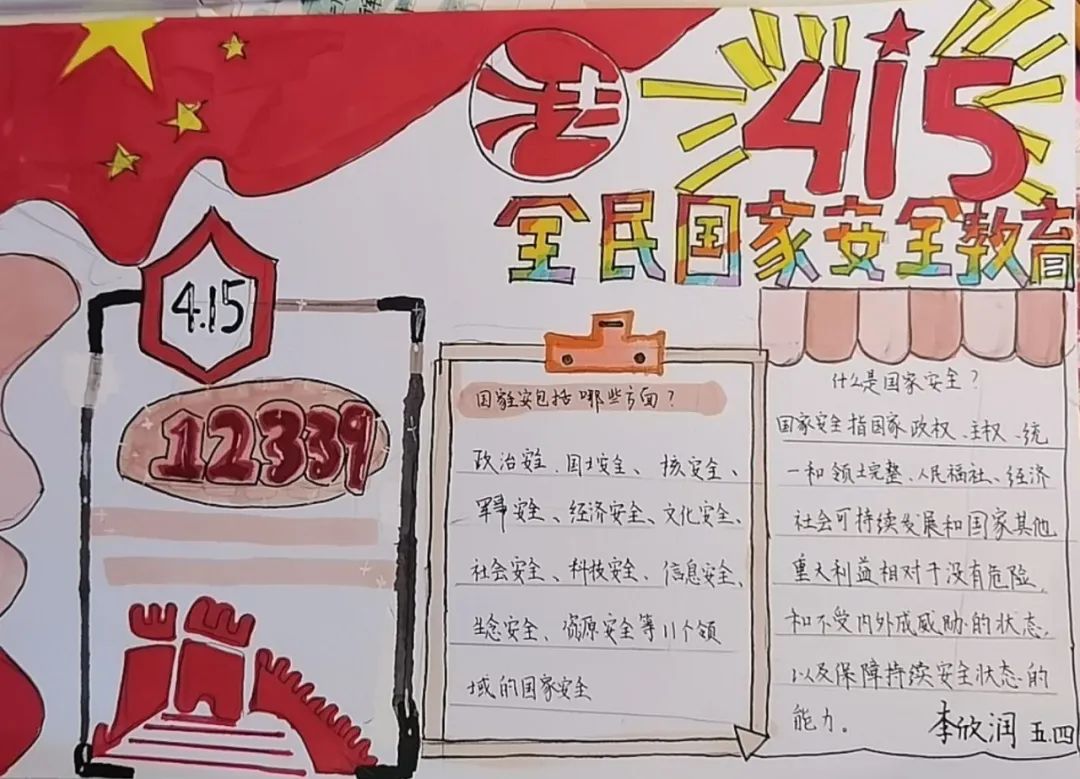 法
415
全民国家安全教育
4.15
12339
国家全安包括哪些方面?
政治安全、国土安全、核安全、
军事安全、经济安全、文化安全、
社会安全、科技安全、信息安全、
生态安全、资源安全等11个领
域的国家安全
什么是国家安全?
国家安全指国家政权、主权、统
一和领土完整、人民福社、经济
社会可持续发展和国家其他
重大利益相对于没有危险,
和不受内外成威胁的状态,
以及保障持续安全状态的
能力。
李欣润 五.四